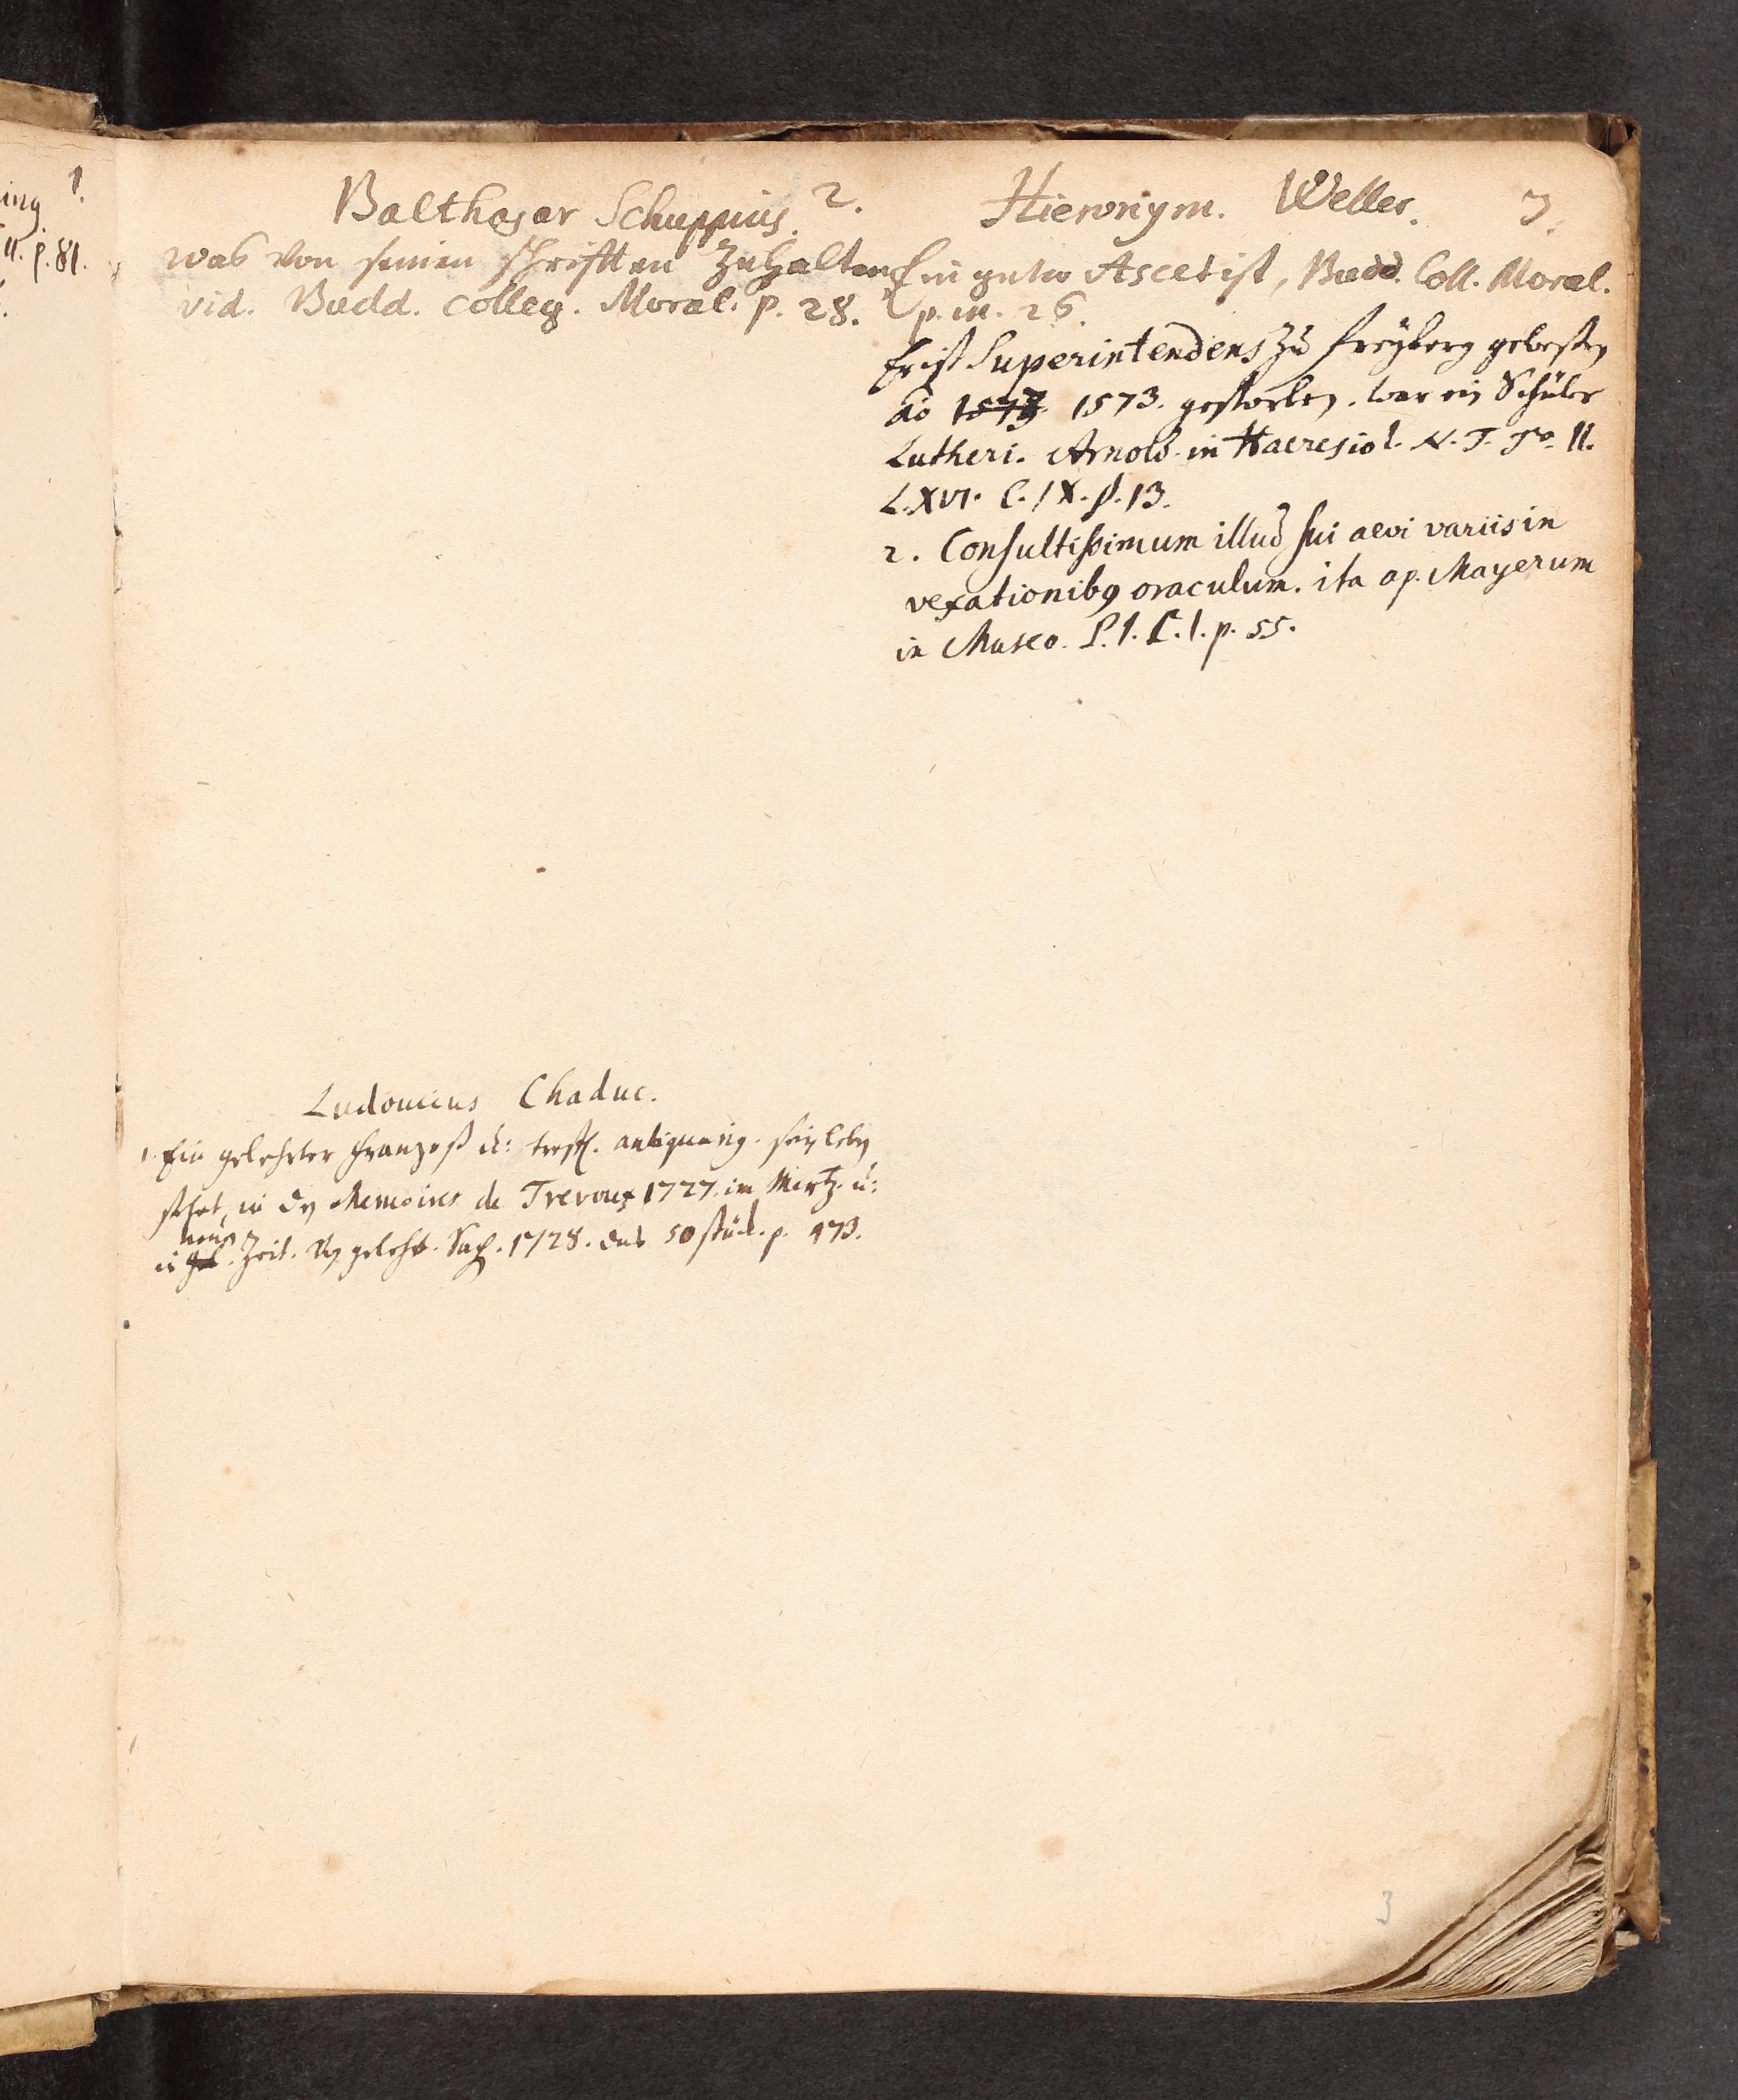 ing 1.
11. p. 81.
Balthasar Schuppius. 2.
was von seinen schrifften zuhalten
vid. Budd. Colleg. Moral. p. 28.
Ludouicus Chaduc.
1. Ein gelehrter Franzoß u: treff. antiquarig. sein leben
stehet in den Memoires de Trevoux 1727. im Mertz. u:
neuen
in Zeit. von gelehrt. Sach. 1728. das 50 stück. p. 473.
Hieronym. Weller. 3.
Ein guter Ascetist, Budd. Coll. Moral.
p. m. 26.
Er ist Superintendens zu Freyberg gewesen
Ao 1573. 1573. gestorben. war ein Schüler
Lutheri. Arnold. in Haeresiol. N. T. To. II.
L. XVI. C. IX. §. 13.
2. Consultissimum illud sui aevi variis in
vexationibg oraculum. ita ap. Mayerum
in Museo. P. 1. C. 1. p. 55.
3